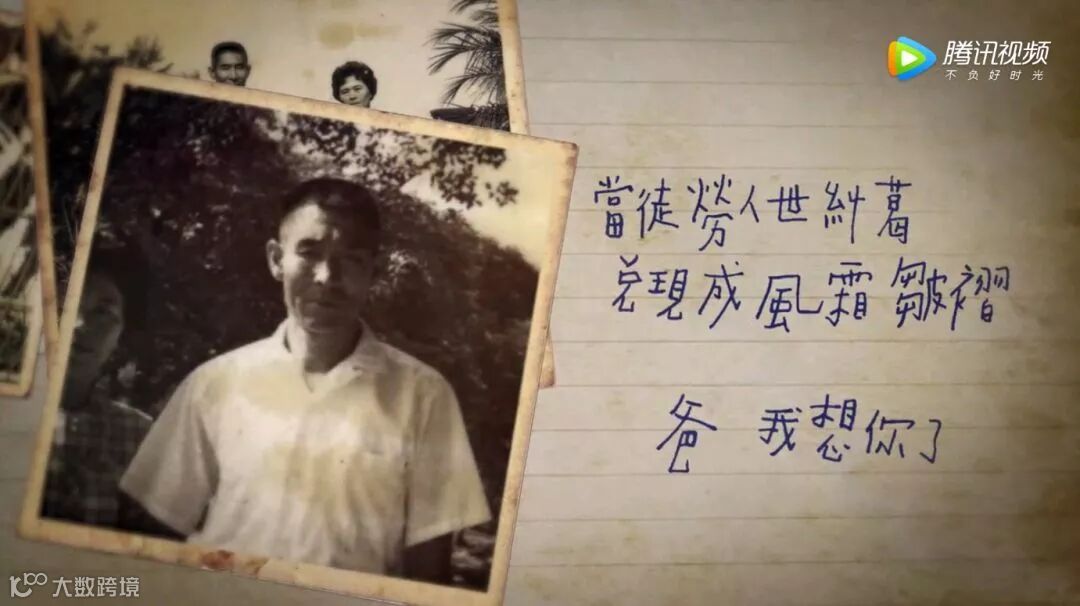 腾讯视频
不负好时光
當徒勞人世糾葛
兌現成風霜皺褶
爸 我想你了
大数跨境